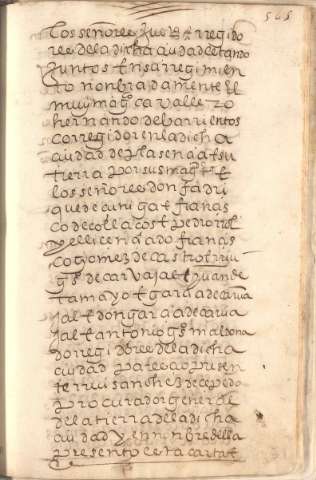 565
los señores Just^a E rregido
res de la dicha ciudad estando
juntos En su rregimien
to nonbradamente El
muy mag^co cavallero
hernando de barrientos
corregidor en la dicha
ciudad de plasencia E su
tierra por su mag^t E
los señores don fadri
que de cuniga E fran^co
de collaços E pedro
y el licenciado fran^co
gomez de castro E rrui
g^s de carvajal E juan de
tamayo E garcia de carva
jal E don garcia de carva
jal E antonio g^s maldona
do rregidores de la dicha
ciudad parescio presen
te rrui sanchez de cepeda
procurador general
de la tierra de la dicha
ciudad y en nonbre della
presento esta carta E